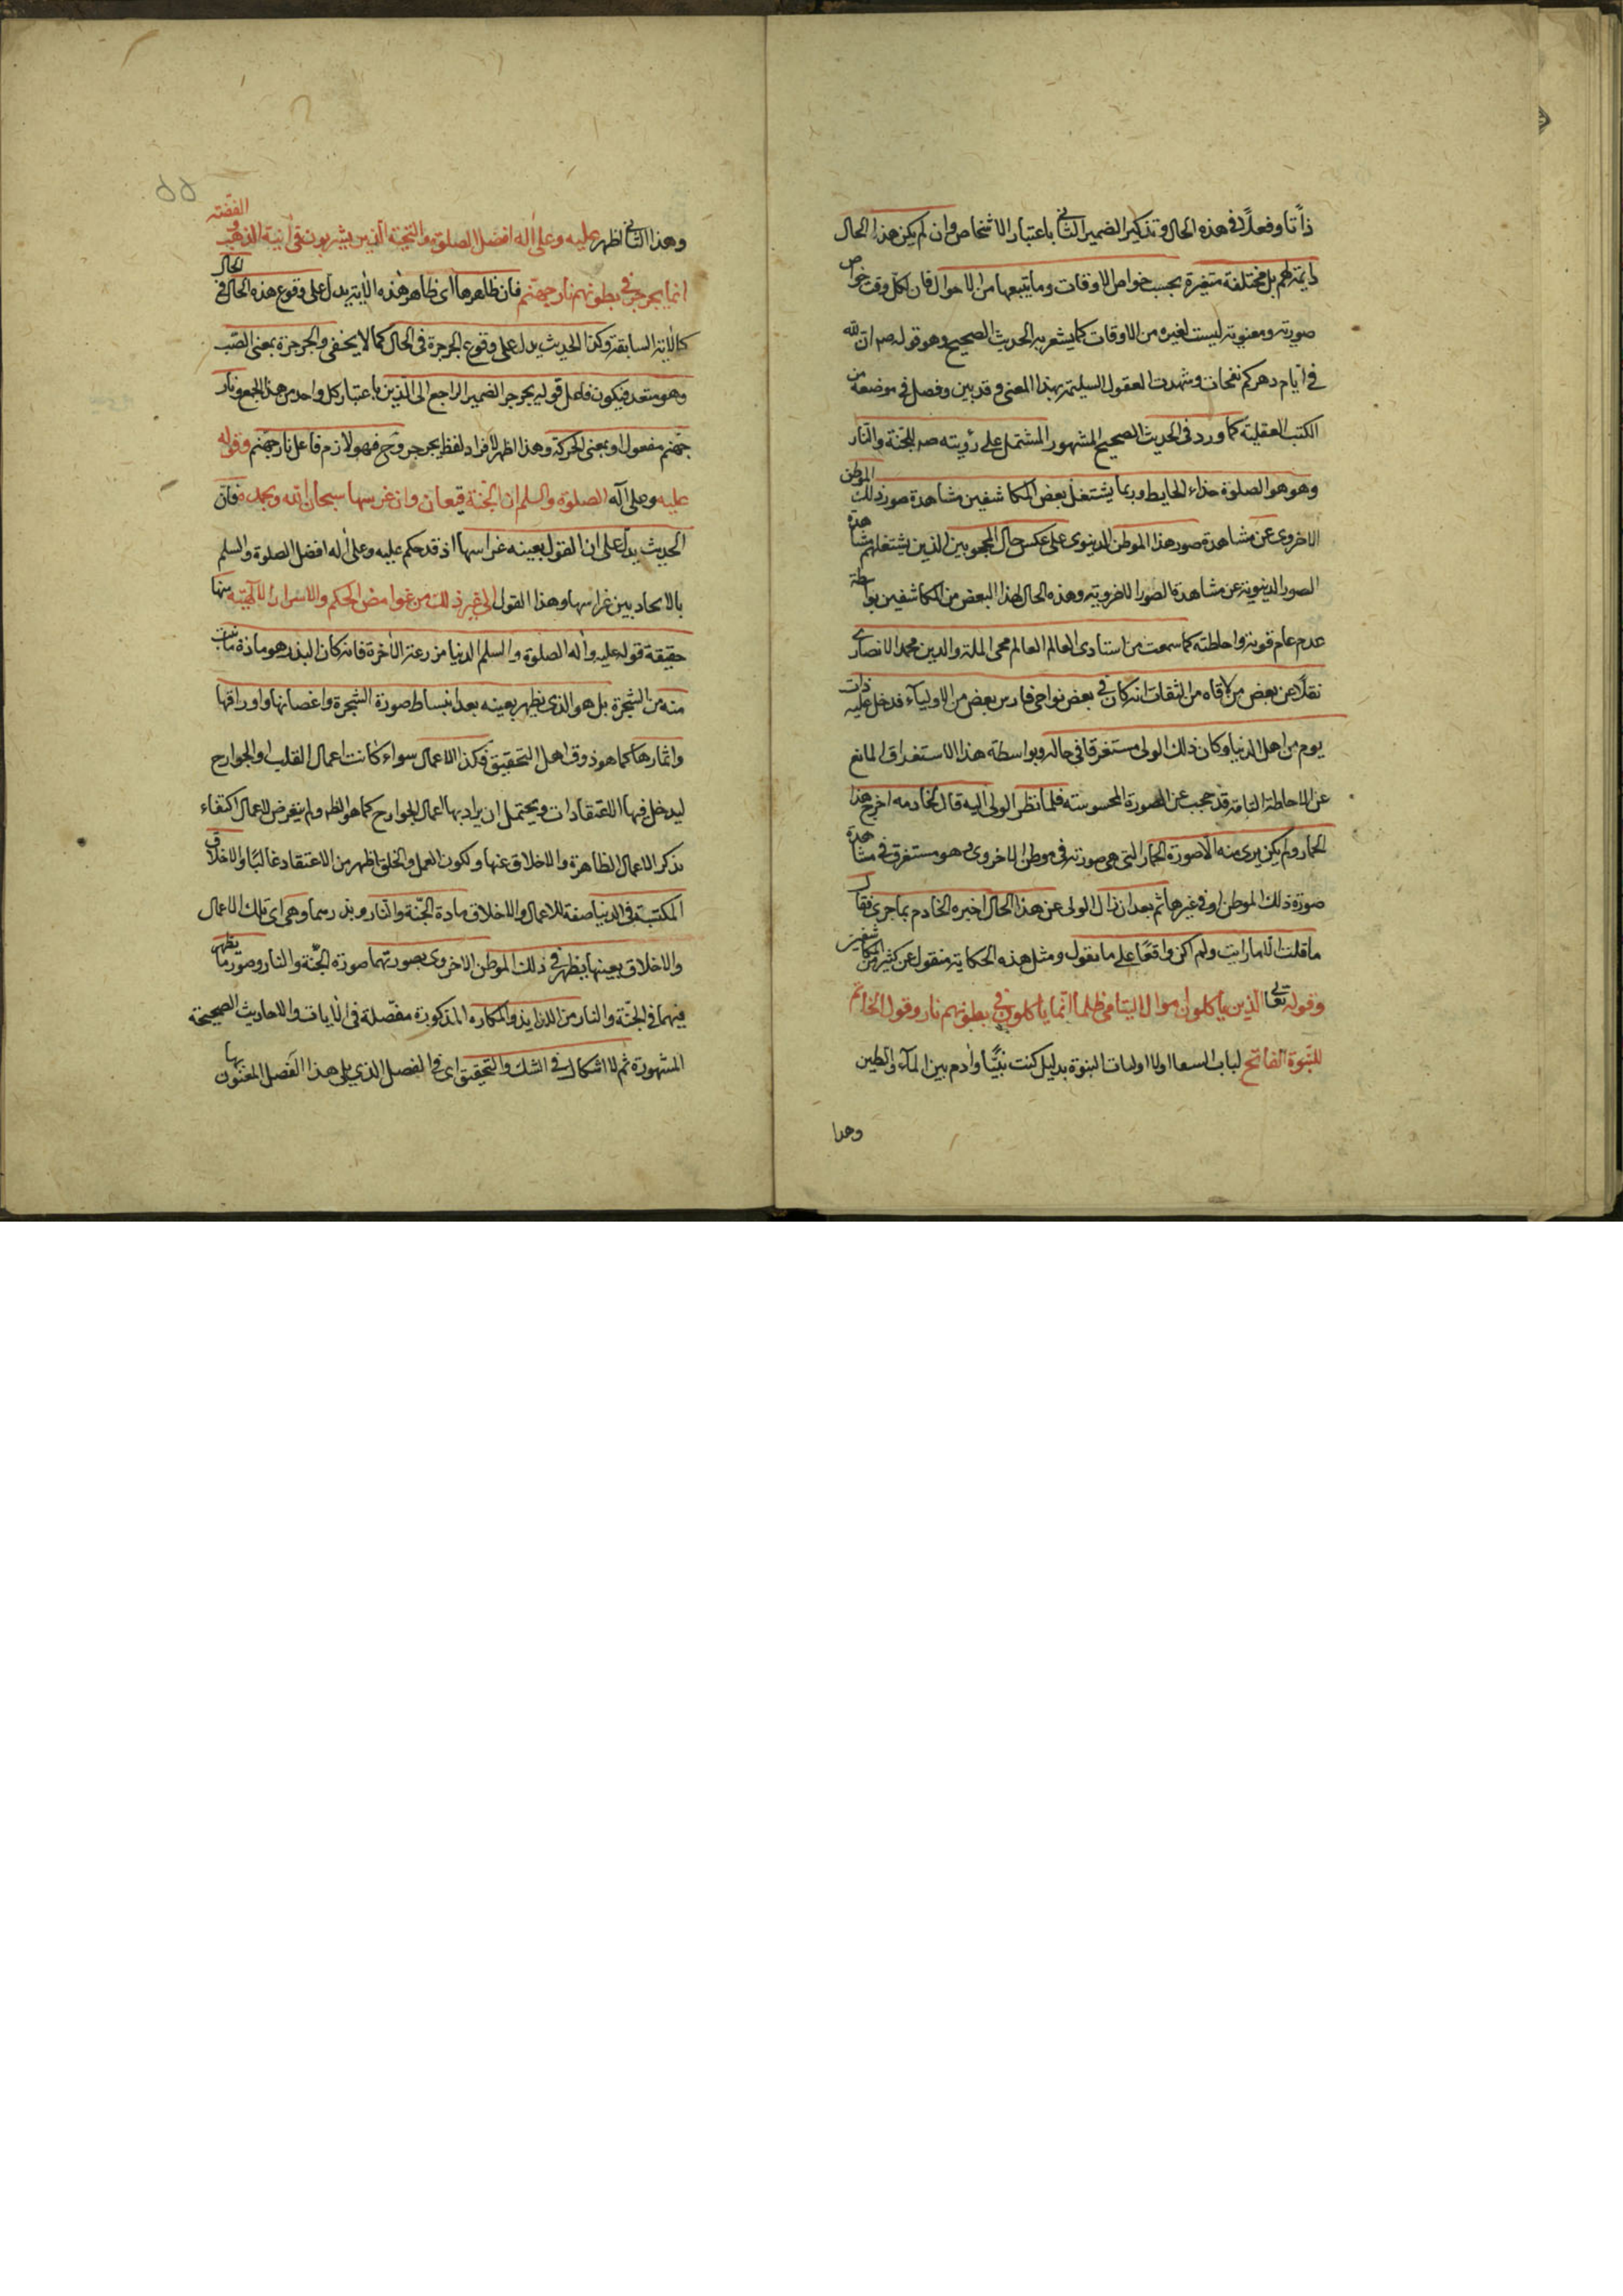 ذاتا وفعلا في هذه الحال وتذكير الضمير الثاني باعتبار الاشخاص وان لم يكن هذا الحال
دايمة لهم بل مختلفة متغيرة بحسب خواص الاوقات وما يتبعها من الاحوال فان لكل وقت خواص
صورية ومعنوية ليست لغيره من الاوقات كما يشعر به الحديث الصحيح وهو قوله صم ان لله
في ايام دهركم نفحات وشهدت العقول السليمة بهذا المعنى وقد بين وفصل في موضعه من
الكتب العقلية كما ورد في الحديث الصحيح المشهور المشتمل على رؤيته صم للجنة والنار
وهو هو الصلوة حذاء الحايط وربما يشتغل بعض المكاشفين مشاهدة صور ذلك الموطن
الاخروى عن مشاهدة صور هذا الموطن الدنيوى على عكس حال المحجوبين الذين يشتغلهم مشاهدة
الصور الدنيوية عن مشاهدة الصور الاخروية وهذه الحال لهذا البعض من المكاشفين بواسطة
عدم قوته واحاطته كما سمعت من استادى العالم العالم محى الملة والدين محمد الانصارى
نقلا عن بعض من لاقاه من الثقات انه كان في بعض نواحى فارس بعض من الاولياء فدخل عليه ذات
يوم من اهل الدنيا وكان ذلك الولى مستغرقا في حاله وبواسطة هذا الاستغراق المانع
عن الاحاطة التامة قد حجب عن الصورة المحسوسة فلما نظر الولى اليه قال لخادمه اخرج هذا
الحمار ولم يكن يرى منه الا صورة الحمار التى هى صورته في موطن الاخروى وهو مستغرق في مشاهدة
صورة ذلك الموطن او في غيرها ثم بعد ان زال الولى عن هذا الحال اخبره الخادم بما جرى فقال
ما قلت الا ما رايت ولم اكن واقعا على ما نقول ومثل هذه الحكاية منقول عن كثير من المكاشفين
وقوله تعالى الذين ياكلون اموال اليتامى ظلما انما ياكلون في بطونهم نار وقول الخاتم
للنبوة الفاتح لباب النبوة بدليل كنت نبيا وادم بين الماء والطين
وهذا
وهذا الثاني اظهر عليه وعلى اله افضل الصلوة والتحية الذين يشربون في آنية الذهب والفضة
انما يجرجر في بطونهم نار جهنم فان ظاهرها اى ظاهر هذه الاية يدل على وقوع هذه الحال في الحال
كالاية السابقة وكذا الحديث يدل على وقوع الجرجرة في الحال كما لا يخفى والجرجرة بمعنى الصب
وهو متعد فيكون فاعل قوله يجرجر الضمير الراجع الى الذين باعتبار كل واحد من هذا الجمع ونار
جهنم مفعول او بمعنى الحركة وهذا اظهر لافراد لفظ يجرجر وح فهو لازم فاعل نار جهنم وقوله
عليه وعلى آله الصلوة والسلم ان الجنة قيعان وان غرسها سبحان الله وبحمده فان
الحديث يدل على ان القول بعينه غراسها اذ قد حكم عليه وعلى اله افضل الصلوة والسلم
بالاتحاد بين غراسها وهذا القول الى غير ذلك من غوامض الحكم والاسرار الالهية منها
حقيقة قوله عليه واله الصلوة والسلم الدنيا مزرعة الاخرة فانه كان البذر هو مادة ما نبت
منه من الشجرة بل هو الذى يظهر بعينه بعد انبساط صورة الشجرة واغصانها واوراقها
واثمارها كما هو ذوق اهل التحقيق فكذا الاعمال سواء كانت اعمال القلب او الجوارح
ليدخل فيها الاعتقادات ويحتمل ان يراد بها اعمال الجوارح كما هو الظاهر ولم يتعرض للاعمال اكتفاء
بذكر الاعمال الظاهرة والاخلاق عنها ولكون العمل والخلق اظهر من الاعتقاد غالبا والاخلاق
المكتسبة في الدنيا صفة للاعمال والاخلاق مادة الجنة والنار وبذرهما وهى اى تلك الاعمال
والاخلاق بعينها يظهر في ذلك الموطن الاخروى بصورتهما صورة الجنة والنار وصور ما يظهر
فيهما في الجنة والنار من اللذايذ والمكاره المذكورة مفصلة في الايات والاحاديث الصحيحة
المشهورة ثم لا اشكال في الشك والتحقيق اى في الفصل الذي يلى هذا الفصل المعنون بها